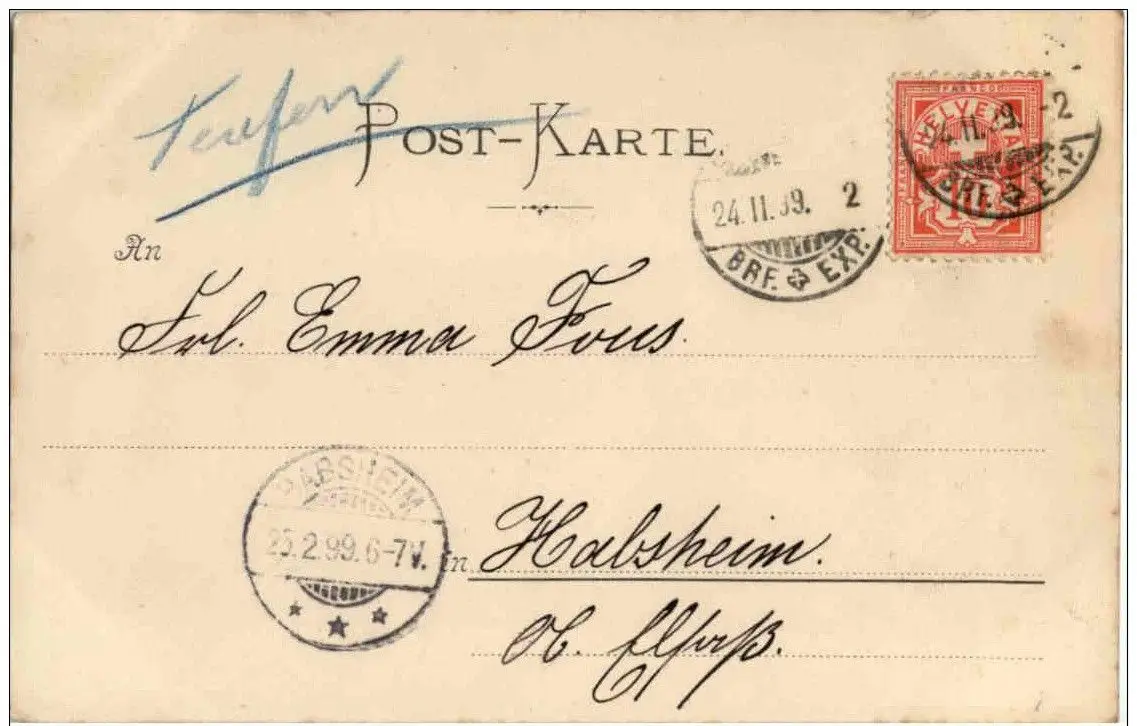 Teufen
POST-KARTE.
FRANCO
HELVETIA
10
24.II.99. 2
BRF. EXP.
24.II.99. -2
BRF. EXP.
An
Frl. Emma Fous.
HABSHEIM
25.2.99.6-7V.
in Habsheim.
O. Elsaß.